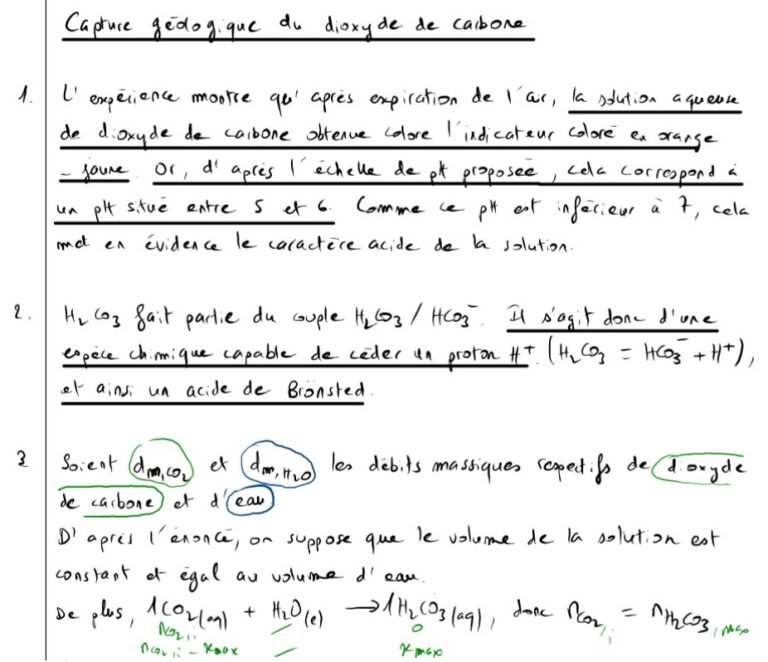 Capture géologique du dioxyde de carbone
1. L'expérience montre qu'après expiration de l'air, la solution aqueuse
de dioxyde de carbone obtenue colore l'indicateur coloré en orange
- jaune. Or, d'après l'échelle de pH proposée, cela correspond à
un pH situé entre 5 et 6. Comme ce pH est inférieur à 7, cela
met en évidence le caractère acide de la solution.
2. H₂CO₃ fait partie du couple H₂CO₃ / HCO₃⁻. Il s'agit donc d'une
espèce chimique capable de céder un proton H⁺ (H₂CO₃ = HCO₃⁻ + H⁺),
et ainsi un acide de Brönsted.
3 Soient dm,CO₂ et dm,H₂O les débits massiques respectifs de dioxyde
de carbone et d'eau
D'après l'énoncé, on suppose que le volume de la solution est
constant et égal au volume d'eau.
De plus, 1CO₂(aq) + H₂O(l) → 1H₂CO₃(aq), donc nCO₂,i = nH₂CO₃,max
nCO₂,i 0
nCO₂,i - xmax xmax